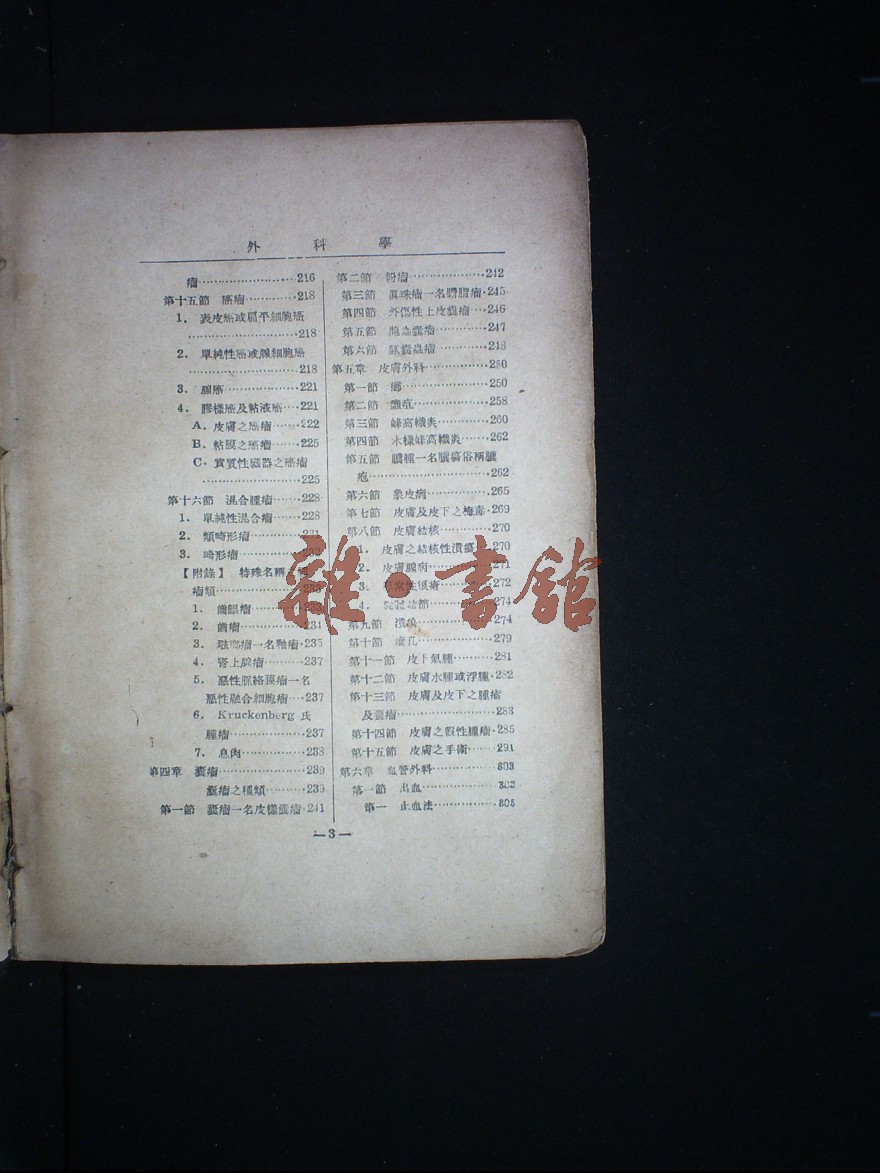 外科學
瘤……216
第十五節 癌瘤……218
1. 表皮癌或扁平細胞癌
……218
2. 單純性癌或腺細胞癌
……218
3. 腺癌……221
4. 膠樣癌及粘液癌……221
A. 皮膚之癌瘤……222
B. 粘膜之癌瘤……225
C. 實質性臟器之癌瘤
……225
第十六節 混合腫瘤……228
1. 單純性混合瘤……228
2. 類畸形瘤……231
3. 畸形瘤
【附錄】 特殊名稱
瘤類
1. 齒齦瘤
2. 齒瘤……234
3. 琺瑯瘤一名釉瘤……235
4. 腎上腺瘤……237
5. 惡性脈絡膜瘤一名
惡性融合細胞瘤……237
6. Kruckenberg 氏
腫瘤……237
7. 息肉……238
第四章 囊瘤……239
囊瘤之種類……239
第一節 囊瘤一名皮樣囊瘤·241
第二節 粉瘤……242
第三節 眞珠瘤一名膽脂瘤·245
第四節 外傷性上皮囊瘤……246
第五節 胞蟲囊瘤……247
第六節 豚囊蟲瘤……248
第五章 皮膚外科……250
第一節 癤……250
第二節 癰疽……258
第三節 蜂窩織炎……260
第四節 木樣蜂窩織炎……262
第五節 膿腫一名膿瘍俗稱膿
疱……262
第六節 象皮病……265
第七節 皮膚及皮下之梅毒·269
第八節 皮膚結核……270
1. 皮膚之結核性潰瘍·270
2. 皮膚腺病……271
3. 尋常性狼瘡……272
4. 結節……274
第九節 潰瘍……274
第十節 瘻孔……279
第十一節 皮下氣腫……281
第十二節 皮膚水腫或浮腫·282
第十三節 皮膚及皮下之腫瘤
及囊瘤……283
第十四節 皮膚之假性腫瘤·285
第十五節 皮膚之手術……291
第六章 血管外科……303
第一節 出血……303
第一 止血法……305
—3—
雜·書館